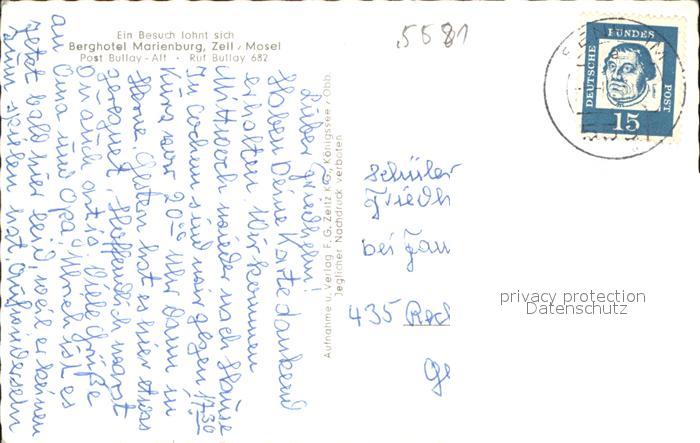 5581
Ein Besuch lohnt sich
Berghotel Marienburg, Zell / Mosel
Post Bullay-Alf • Ruf Bullay 682
DEUTSCHE
BUNDES
POST
15
Lieber Friedhelm!
Haben Deine Karte dankend
erhalten. Wir kommen
Mittwoch wieder nach Hause
In Cochem sind wir gegen 17.30
Kurz vor 20 00 Uhr dann in
Herne. Gestern hat es hier etwas
geregnet. Hoffentlich warst
Du auch artig. Viele Grüße
an Oma und Opa. Ulrich ist es
jetzt bald hier leid, weil er keinen
zum spielen hat. Aufwiedersehn
Aufnahme u. Verlag F. G. Zeitz KG., Königssee / Obb.
Jeglicher Nachdruck verboten
Schüler
Friedh
bei Fam
435 Reck
Ge
privacy protection
Datenschutz